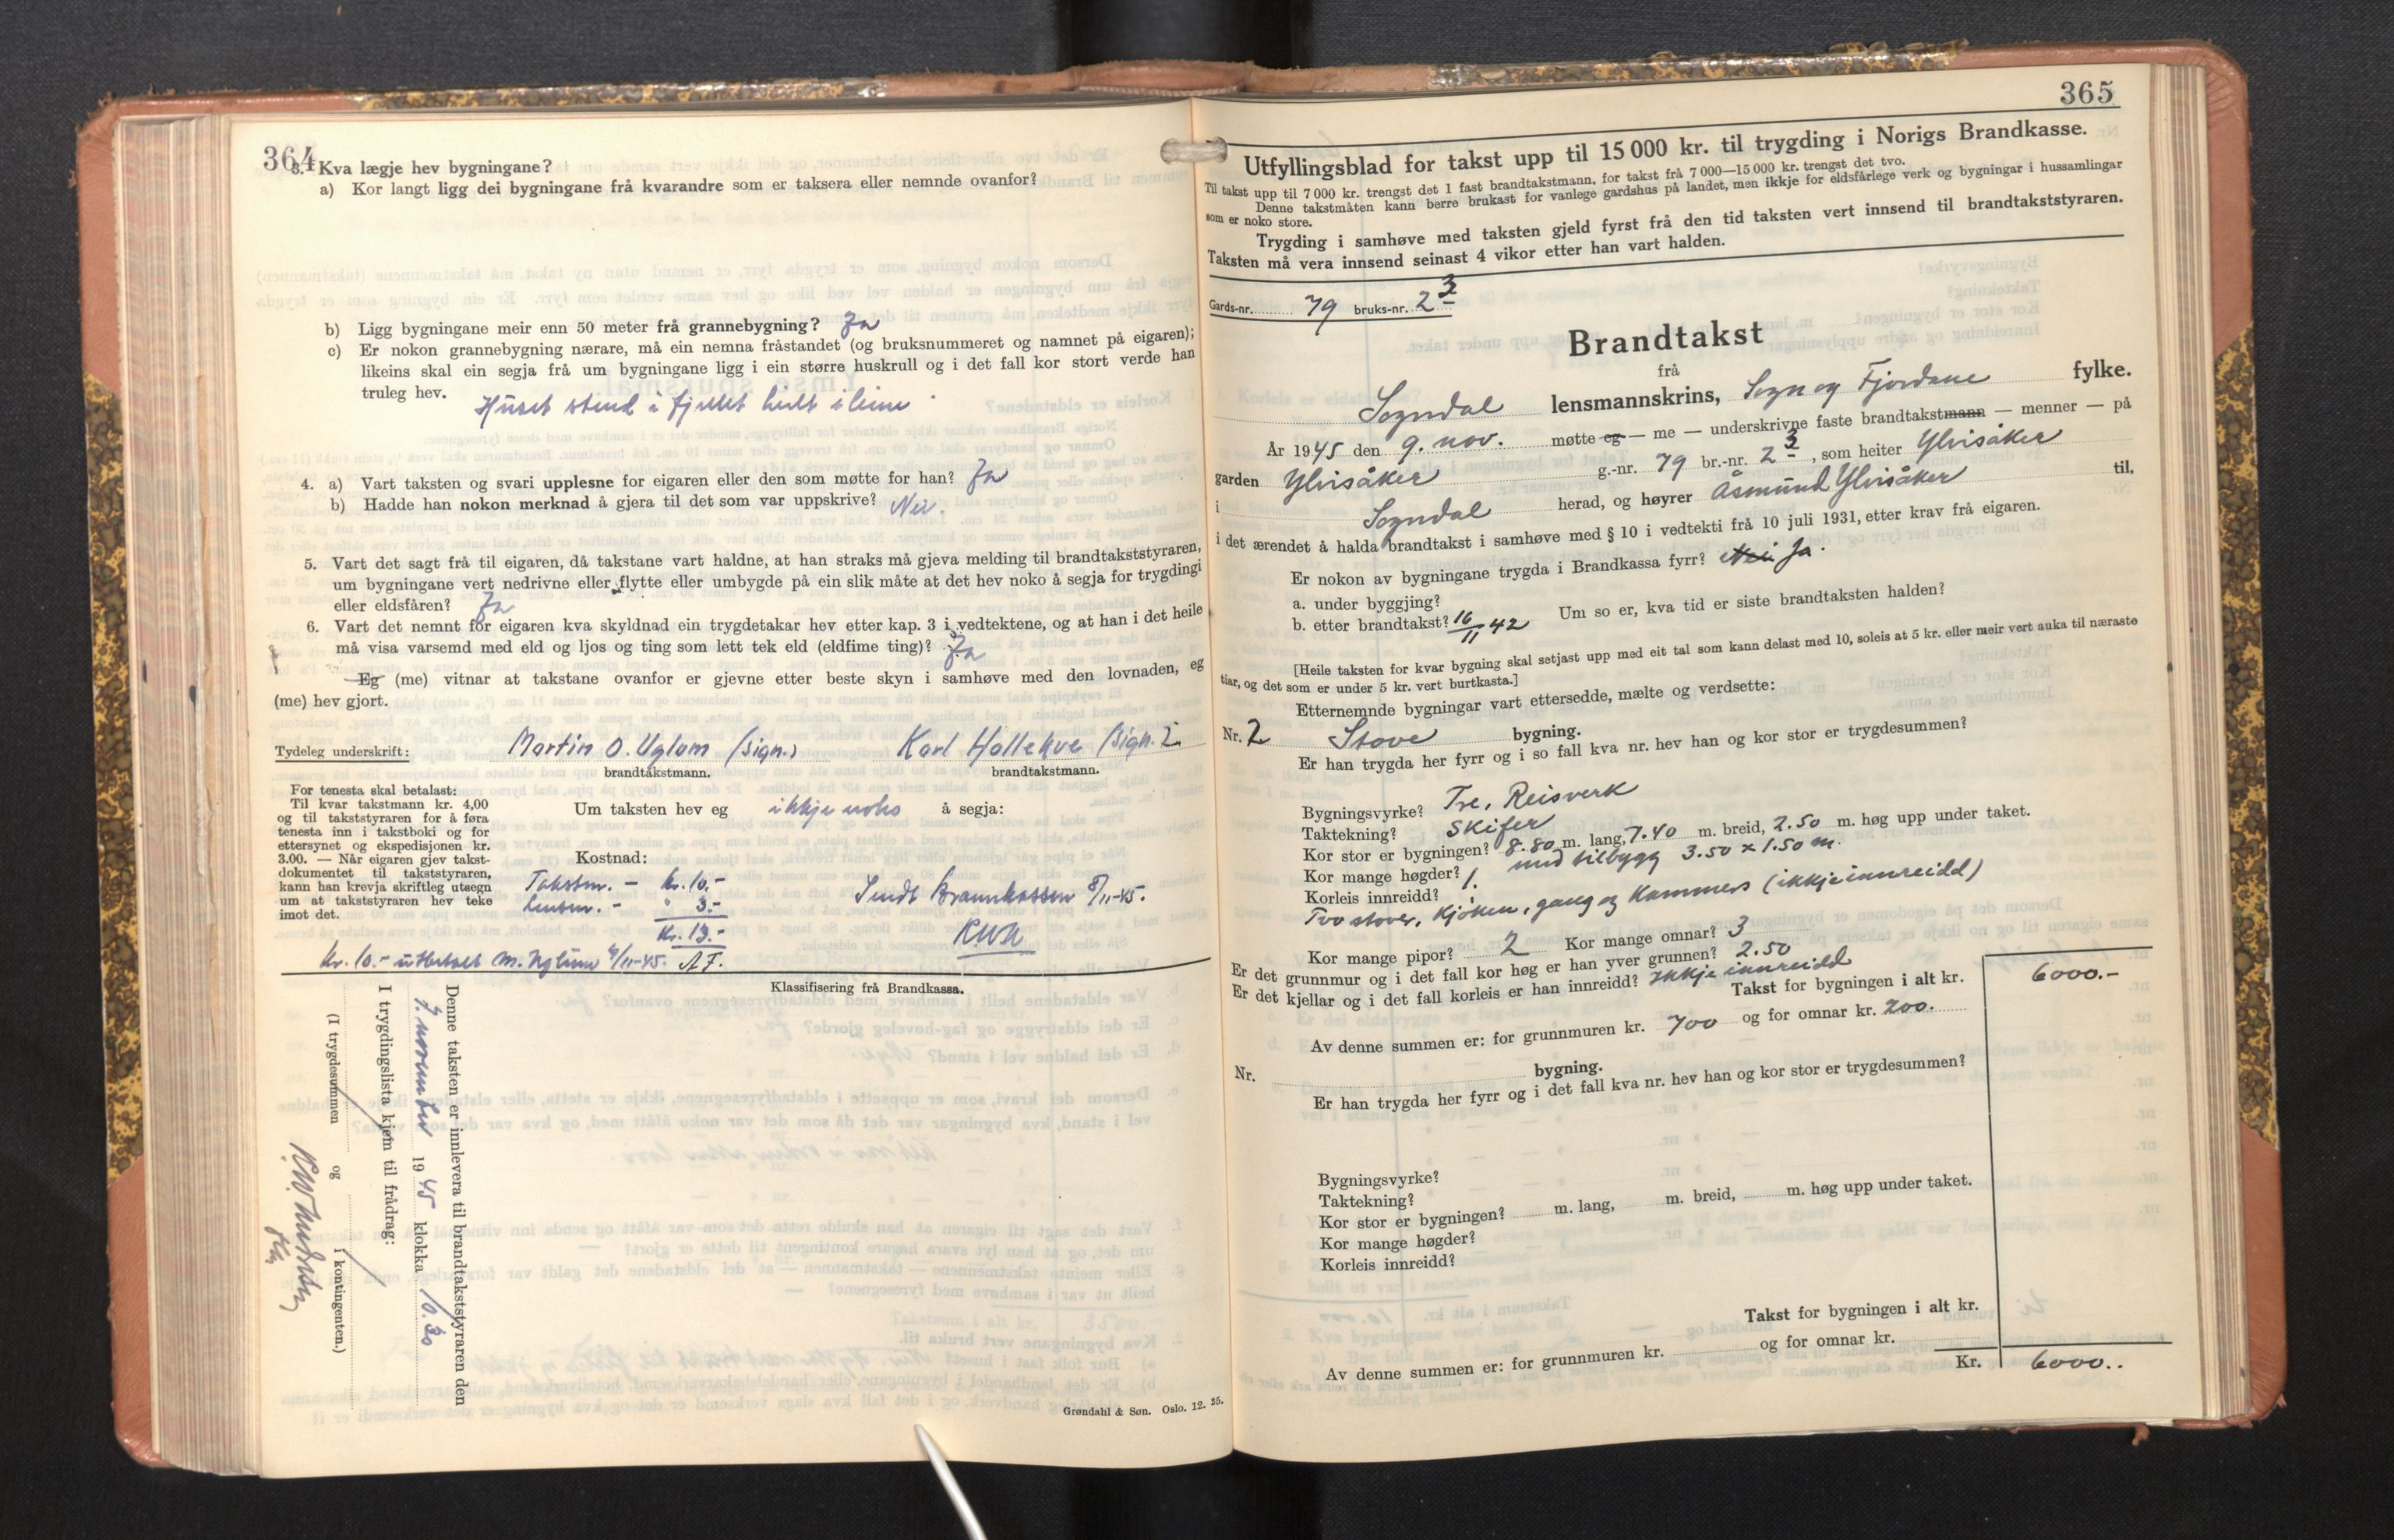 364
3. Kva lægje hev bygningane?
a) Kor langt ligg dei bygningane frå kvarandre som er taksera eller nemnde ovanfor?
b) Ligg bygningane meir enn 50 meter frå grannebygning? Ja
c) Er nokon grannebygning nærare, må ein nemna fråstandet (og bruksnummeret og namnet på eigaren);
likeins skal ein segja frå um bygningane ligg i ein større huskrull og i det fall kor stort verde han
truleg hev.
Huset stend i fjellet heilt i leine
4. a) Vart taksten og svari upplesne for eigaren eller den som møtte for han? Ja
b) Hadde han nokon merknad å gjera til det som var uppskrive? Nei.
5. Vart det sagt frå til eigaren, då takstane vart haldne, at han straks må gjeva melding til brandtakststyraren,
um bygningane vert nedrivne eller flytte eller umbygde på ein slik måte at det hev noko å segja for trygdingi
eller eldsfåren? Ja
6. Vart det nemnt for eigaren kva skyldnad ein trygdetakar hev etter kap. 3 i vedtektene, og at han i det heile
må visa varsemd med eld og ljos og ting som lett tek eld (eldfime ting)? Ja
Eg (me) vitnar at takstane ovanfor er gjevne etter beste skyn i samhøve med den lovnaden, eg
(me) hev gjort.
Tydeleg underskrift: Martin O. Uglum (sign.) Karl Hollekve (sign.)
brandtakstmann. brandtakstmann.
For tenesta skal betalast:
Til kvar takstmann kr. 4,00
og til takststyraren for å føra
tenesta inn i takstboki og for
ettersynet og ekspedisjonen kr.
3.00. — Når eigaren gjev takst-
dokumentet til takststyraren,
kann han krevja skriftleg utsegn
um at takststyraren hev teke
imot det.
Um taksten hev eg ikkje noko å segja:
Kostnad:
Takstm. - kr. 10.-
lensm. - " 3.-
Kr. 13.-
Sendt Brannkassen 8/11-45.
KWA
Kr. 10.- utbetalt M. Uglum 9/11-45. A F.
Klassifisering frå Brandkassa.
Denne taksten er innlevera til brandtakststyraren den
7. november 1945 klokka 10.30
I trygdingslista kjem til frådrag:
(I trygdesummen og i kontingenten.)
Grøndahl & Søn. Oslo. 12. 35.
365
Utfyllingsblad for takst upp til 15 000 kr. til trygding i Norigs Brandkasse.
Til takst upp til 7 000 kr. trengst det 1 fast brandtakstmann, for takst frå 7 000—15 000 kr. trengst det tvo.
Denne takstmåten kann berre brukast for vanlege gardshus på landet, men ikkje for eldsfårlege verk og bygningar i hussamlingar
som er noko store.
Trygding i samhøve med taksten gjeld fyrst frå den tid taksten vert innsend til brandtakststyraren.
Taksten må vera innsend seinast 4 vikor etter han vart halden.
Gards-nr. 79 bruks-nr. 2 3
Brandtakst
frå
Sogndal lensmannskrins, Sogn og Fjordane fylke.
År 1945 den 9. nov. møtte eg — me — underskrivne faste brandtakstmann — menner — på
garden Ylvisåker g.-nr. 79 br.-nr. 2 3, som heiter Ylvisåker
i Sogndal herad, og høyrer Åsmund Ylvisåker til,
i det ærendet å halda brandtakst i samhøve med § 10 i vedtekti frå 10 juli 1931, etter krav frå eigaren.
Er nokon av bygningane trygda i Brandkassa fyrr? Nei Ja.
a. under byggjing?
b. etter brandtakst? 16/11 42 Um so er, kva tid er siste brandtaksten halden?
[Heile taksten for kvar bygning skal setjast upp med eit tal som kann delast med 10, soleis at 5 kr. eller meir vert auka til næraste
tiar, og det som er under 5 kr. vert burtkasta.]
Etternemnde bygningar vart ettersedde, mælte og verdsette:
Nr. 2 Stove bygning.
Er han trygda her fyrr og i so fall kva nr. hev han og kor stor er trygdesummen?
Bygningsvyrke? Tre, Reisverk
Taktekning? Skifer
Kor stor er bygningen? 8.80 m. lang, 7.40 m. breid, 2.50 m. høg upp under taket.
Kor mange høgder? 1. med tilbygg 3.50 x 1.50 m.
Korleis innreidd?
Tvo stover, kjøken, gang og kammers (ikkje innreidd)
Kor mange pipor? 2 Kor mange omnar? 3
Er det grunnmur og i det fall kor høg er han yver grunnen? 2.50
Er det kjellar og i det fall korleis er han innreidd? Ikkje innreidd
Takst for bygningen i alt kr. 6000.-
Av denne summen er: for grunnmuren kr. 700 og for omnar kr. 200.
Nr. bygning.
Er han trygda her fyrr og i det fall kva nr. hev han og kor stor er trygdesummen?
Bygningsvyrke?
Taktekning?
Kor stor er bygningen? m. lang, m. breid, m. høg upp under taket.
Kor mange høgder?
Korleis innreidd?
Takst for bygningen i alt kr.
Av denne summen er: for grunnmuren kr. og for omnar kr.
Kr. 6000..